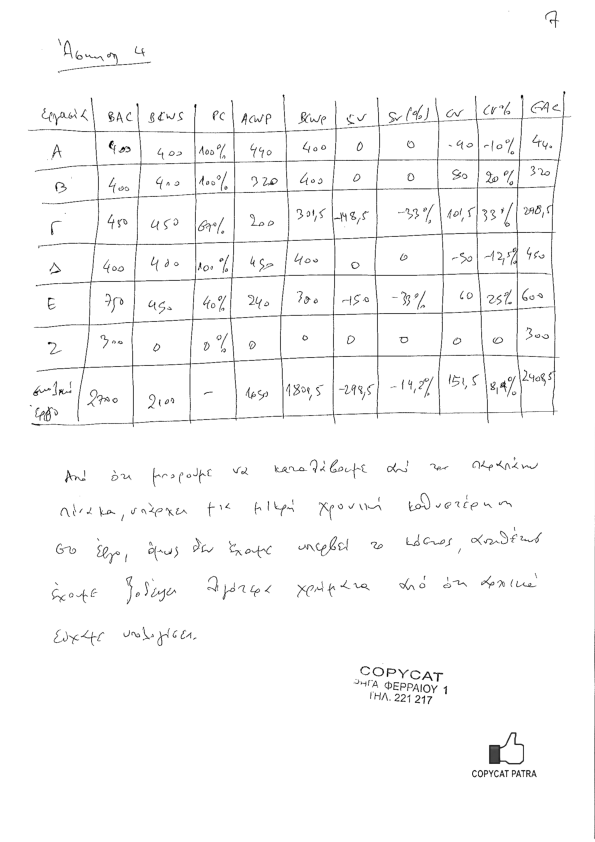 7
Άσκηση 4
Εργασία BAC BCWS PC ACWP BCWP SV SV(%) CV CV% EAC
A 400 400 100% 440 400 0 0 -40 -10% 440
B 400 400 100% 320 400 0 0 80 20% 320
Γ 450 450 67% 200 301,5 -148,5 -33% 101,5 33% 298,5
Δ 400 400 100% 450 400 0 0 -50 -12,5% 450
E 750 450 40% 240 300 -150 -33% 60 25% 600
Z 300 0 0% 0 0 0 0 0 0 300
συνολικό έργο 2700 2100 - 1650 1801,5 -298,5 -14,2% 151,5 8,4% 2408,5
Από ότι μπορούμε να καταλάβουμε από τον παραπάνω
πίνακα, υπάρχει μια μικρή χρονική καθυστέρηση
στο έργο, όμως δεν έχουμε υπερβεί το κόστος, αντιθέτως
έχουμε ξοδέψει λιγότερα χρήματα από ότι αρχικά
είχαμε υπολογίσει.
COPYCAT
ΡΗΓΑ ΦΕΡΡΑΙΟΥ 1
ΤΗΛ. 221 217
COPYCAT PATRA